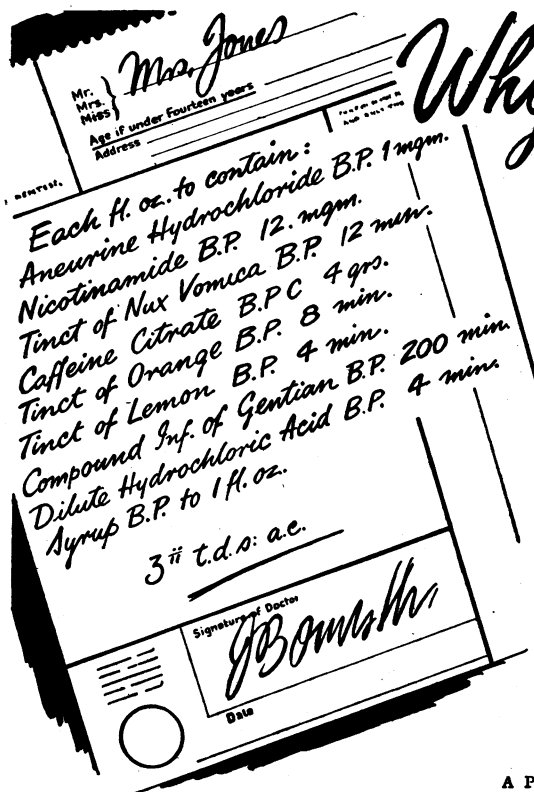 Mrs. Jones
Mr.
Mrs.
Miss
Age if under Fourteen years
Address
Why
DENTIST.
Each fl. oz. to contain:
Aneurine Hydrochloride B.P. 1 mgm.
Nicotinamide B.P. 12. mgm.
Tinct of Nux Vomica B.P. 12 min.
Caffeine Citrate B.P C 4 grs.
Tinct of Orange B.P. 8 min.
Tinct of Lemon B.P. 4 min.
Compound Inf. of Gentian B.P. 200 min.
Dilute Hydrochloric Acid B.P. 4 min.
Syrup B.P. to 1 fl. oz.
3 ii t.d.s: a.c.
Signature of Doctor
Date
A P